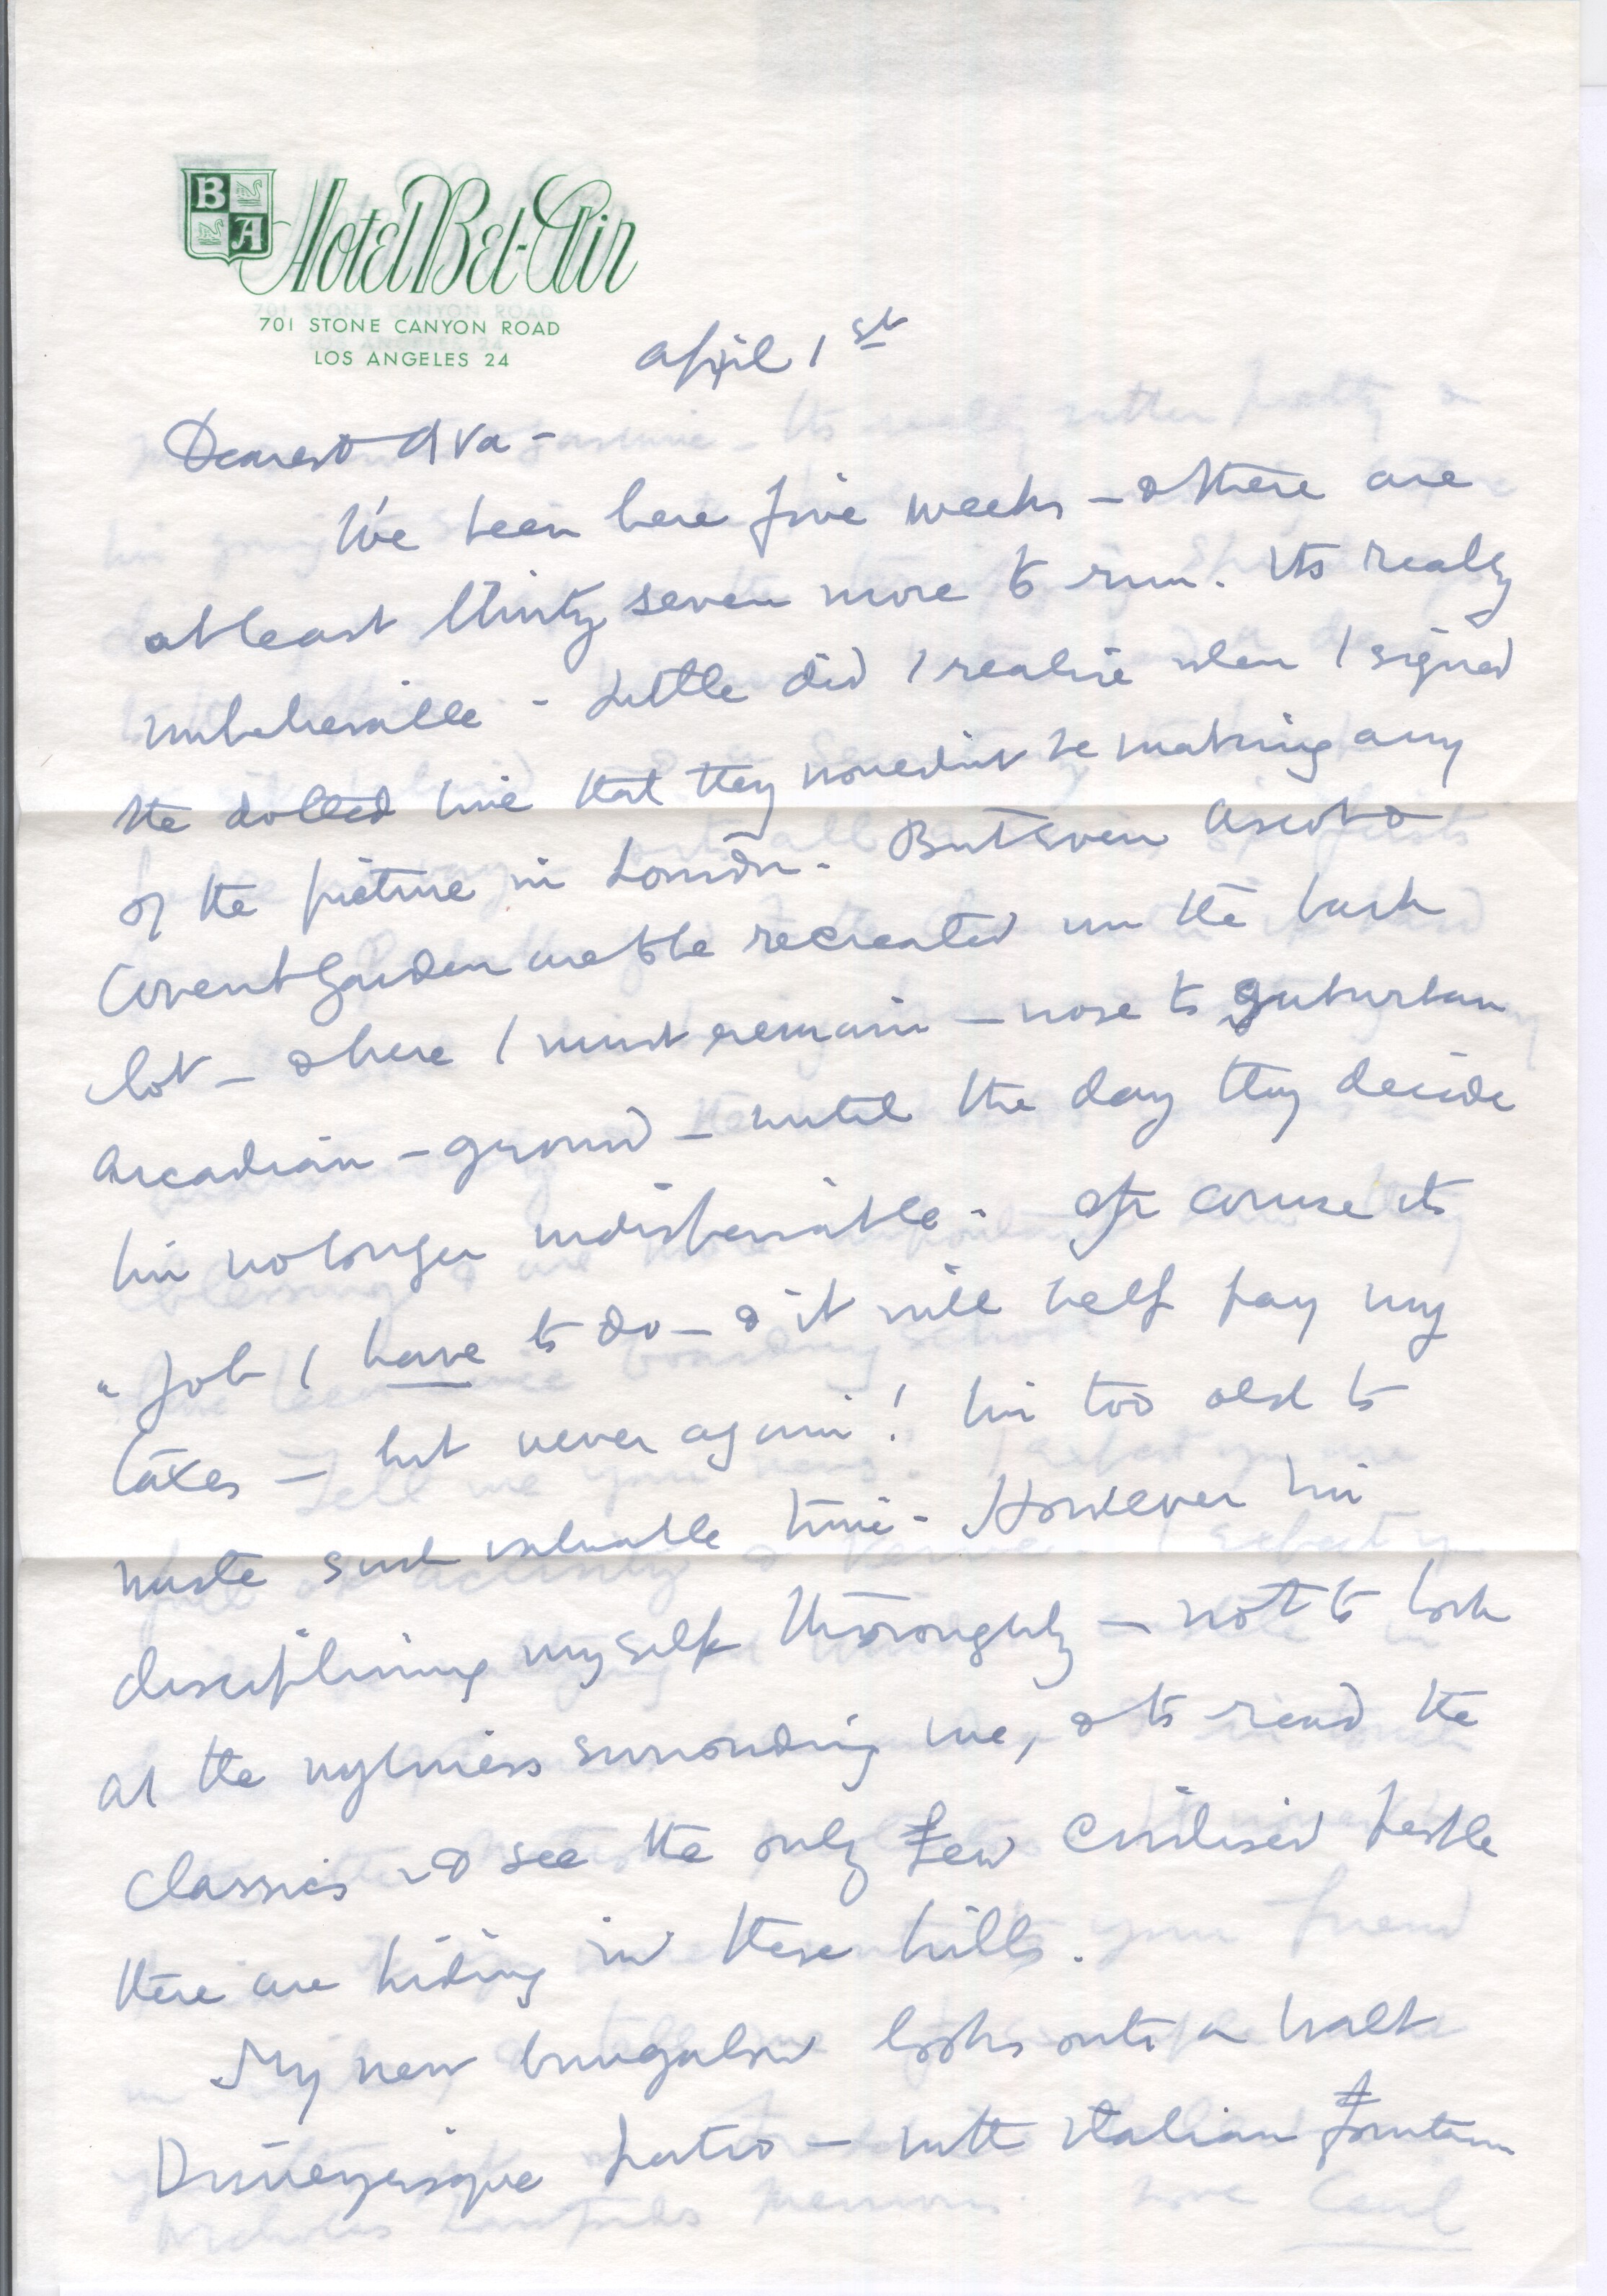 B A Hotel Bel-Air
701 STONE CANYON ROAD
LOS ANGELES 24
April 1st
Dearest Ava -
I've been here five weeks - & there are
at least thirty seven more to run. Its really
unbelievable - Little did I realise when I signed
the dotted line that they wouldnt be making any
of the picture in London. But even Ascot &
Covent Garden are to be recreated on the back
lot - & here I must remain - nose to Suburban
Arcadian - ground - until the day they decide
Im no longer indispensable. Of course its
a job I have to do - & it will help pay my
taxes - but never again! Im too old to
waste such valuable time. However Im
disciplining myself thoroughly - not to look
at the uglyness surrounding me, & to read the
classics & see the only few civilised people
there are hiding in these hills.
My new bungalow looks onto a Walt
Disneyesque patio - with Italian fountain